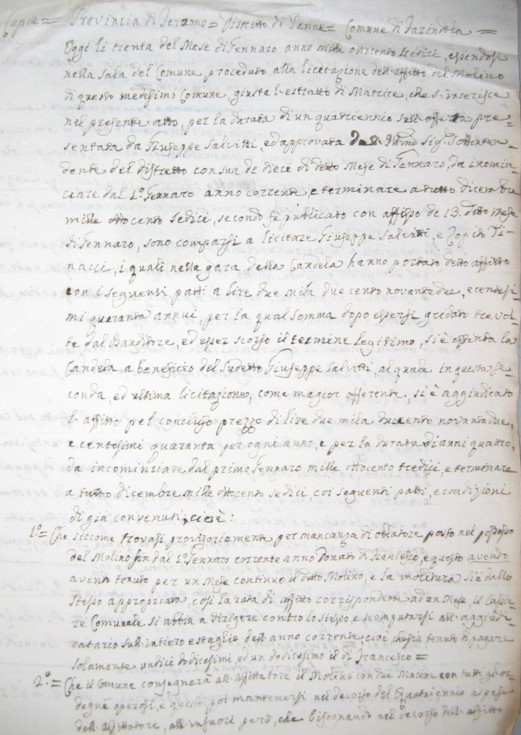 Copia = Provincia di Teramo = Distretto di Penne = Comune di Farindola =
Oggi li trenta del Mese di Gennaro anno mille ottocento tredici, essendosi
nella Sala del Comune, proceduto alla licitazione dell'affitto del Molino
di questo medesimo Comune, giusta l'estratto di Matrice, che s'inserisce
nel presente atto, per la durata di un quatriennio sull'offerta pre-
sentata da Giuseppe Salvitti, ed approvata dal Sig. Sottinten-
dente del distretto con sua de dieci di detto Mese di Gennaro, da incomin-
ciare dal 1º Gennaro anno corrente, e terminare a tutto dicembre
mille ottocento sedici, secondo fù publicato con affisso de 13. detto mese
di Gennaro, sono comparsi a licitare Giuseppe Salvitti, e
i quali nella gara della Candela hanno portato detto affitto
con i seguenti patti a lire due mila due cento novantadue, e centesi-
mi quaranta annui, per la qual somma dopo essersi gridato tre vol-
te dal Banditore, ed esser scorso il termine legitimo, si è estinta la
Candela a beneficio del sudetto Giuseppe Salvitti, al quale in questa se-
conda, ed ultima licitazione, come magior offerente, si è aggiudicato
l'affitto pel concluso prezzo di lire due mila duecento novantadue,
e centesimi quaranta per ogni anno, e per la durata di anni quattro,
da incominciare dal primo Gennaro mille ottocento tredici, e terminare
a tutto dicembre mille ottocento sedici coi seguenti patti, e condizioni
di già convenuti, cioè:
1º= Che siccome trovasi provisoriamente per mancanza di oblatore posto nel possesso
del Molino fin dal 1º Gennaro corrente anno Donato di Francesco, e questo avendo
tenuto per un Mese continuo il detto Molino, e la molitura si è dallo
stesso appropriata, così la rata di affitto corrispondente ad un Mese, il Cassie-
re Comunale si abbia a dirigere contro lo stesso, e scomputarsi all'aggiudi-
catario sull'intiero estaglio dell'anno corrente, cioè tenuto a pagare
solamente undici dodicesimi, ed un dodicesimo il di Francesco =
2º= Che il Comune consegnerà all'affittatore il Molino con due Macine con tutti gl'or-
degni operosi, e questi poi mantenersi nel decorso del Quatriennio a spese
dell'affittatore, all'infuori però, che bisognando nel decorso dell'affitto